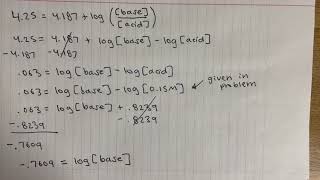 4.25 = 4.187 + log([base]/[acid])
4.25 = 4.187 + log[base] - log[acid]
-4.187 -4.187
.063 = log[base] - log[acid]
.063 = log[base] - log[0.15M] given in problem
.063 = log[base] + .8239
-.8239 -.8239
-.7609
-.7609 = log[base]